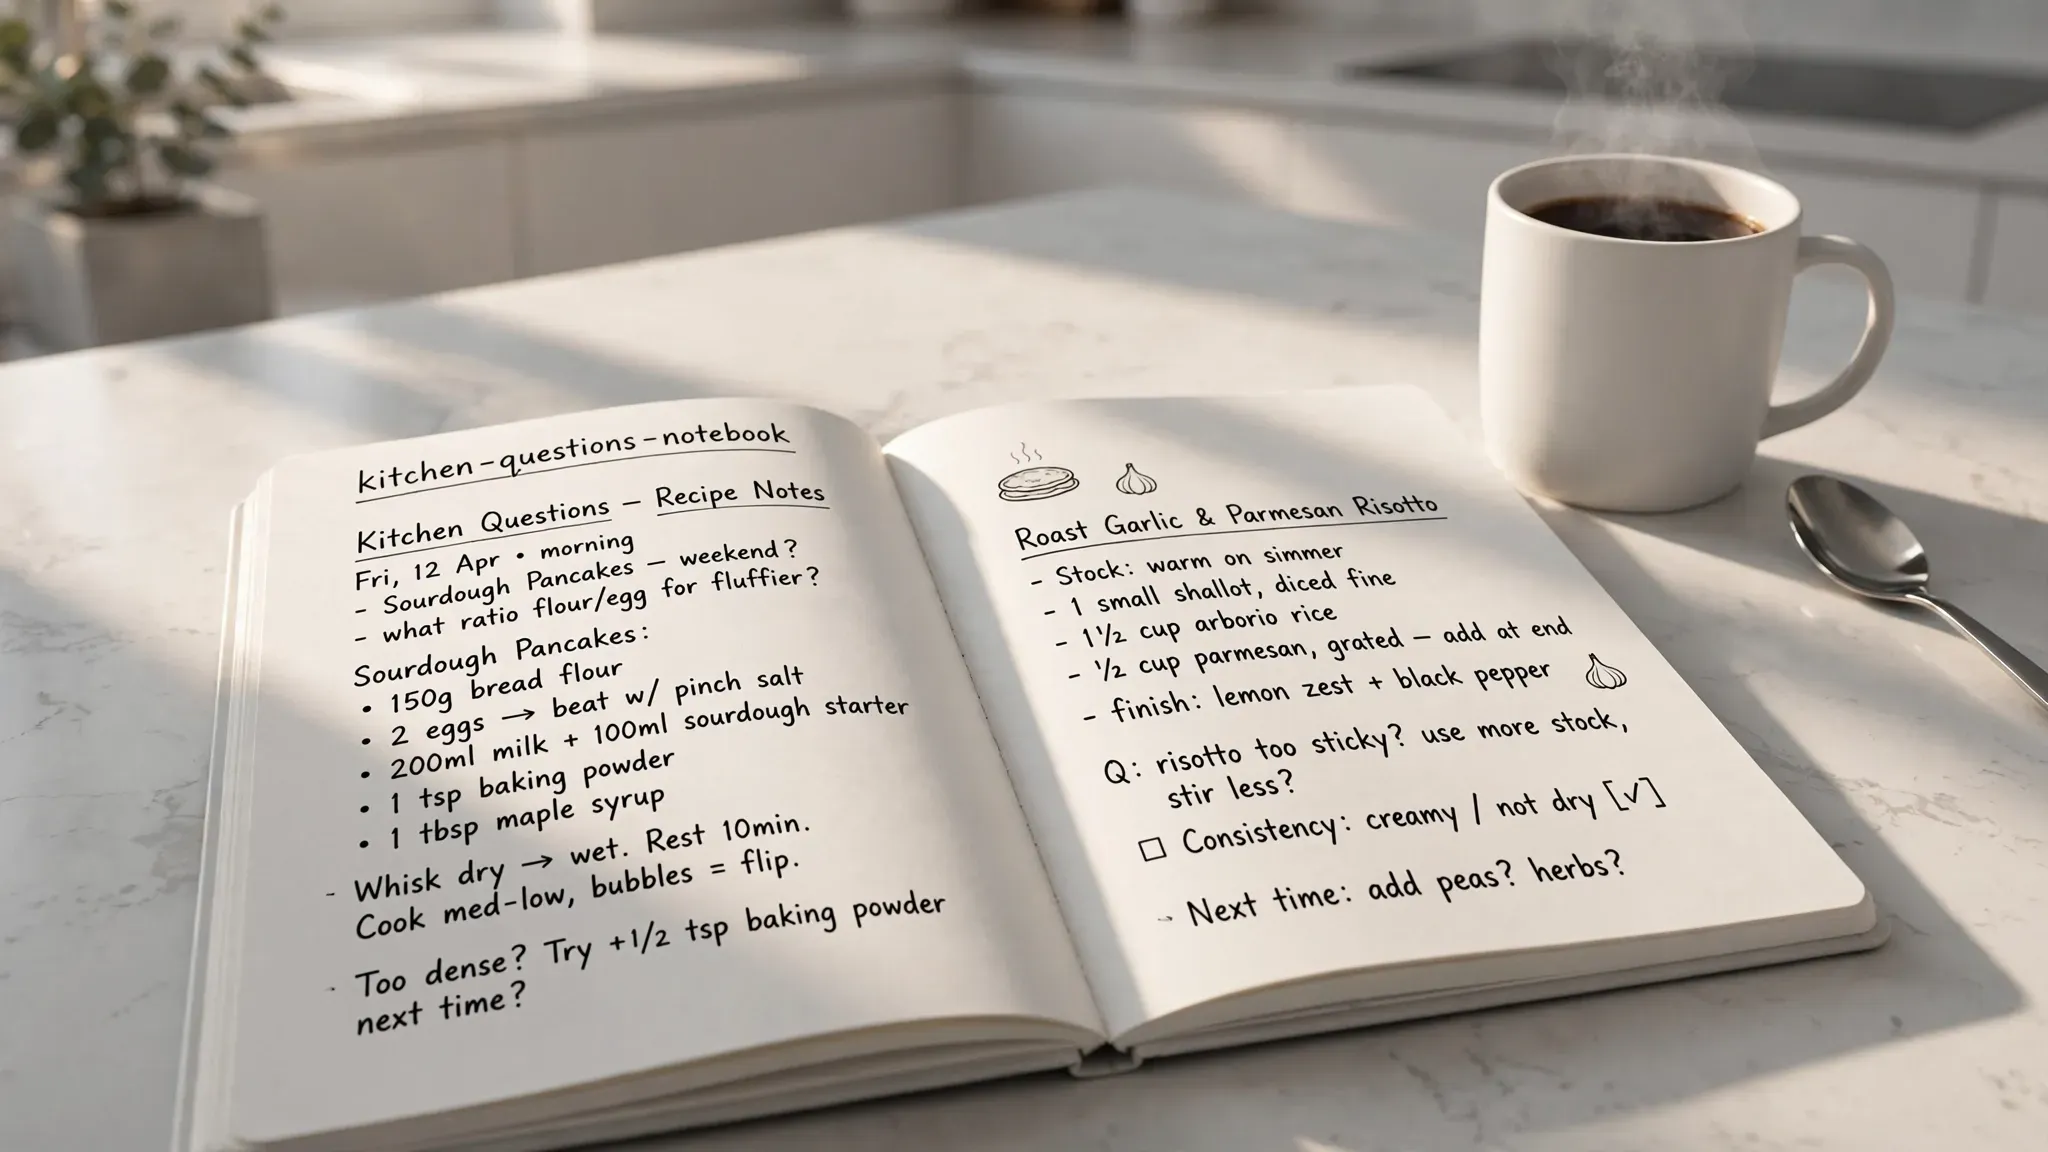 kitchen-questions-notebook
Kitchen Questions — Recipe Notes
Fri, 12 Apr • morning
- Sourdough Pancakes — weekend?
- what ratio flour/egg for fluffier?
Sourdough Pancakes:
• 150g bread flour
• 2 eggs → beat w/ pinch salt
• 200ml milk + 100ml sourdough starter
• 1 tsp baking powder
• 1 tbsp maple syrup
- Whisk dry → wet. Rest 10min.
Cook med-low, bubbles = flip.
· Too dense? Try +1/2 tsp baking powder
next time?
Roast Garlic & Parmesan Risotto
- Stock: warm on simmer
- 1 small shallot, diced fine
- 1½ cup arborio rice
- ½ cup parmesan, grated — add at end
- finish: lemon zest + black pepper
Q: risotto too sticky? use more stock,
stir less?
☐ Consistency: creamy / not dry [✓]
- Next time: add peas? herbs?